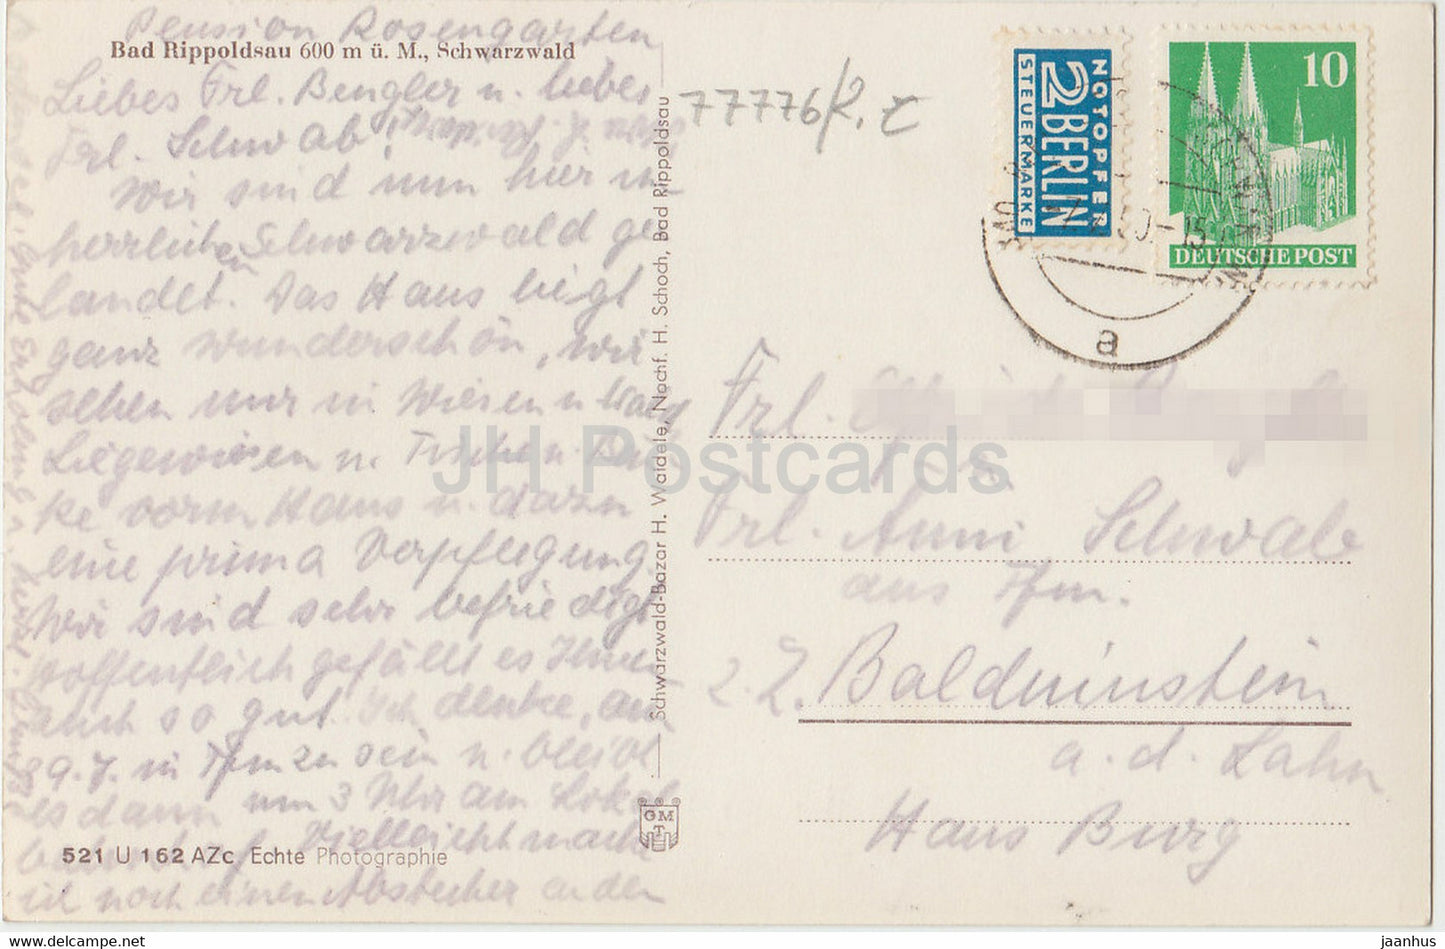 Pension Rosengarten
Bad Rippoldsau 600 m ü. M., Schwarzwald
Liebes Frl. Bengler u. liebes
Frl. Schwab!
Wir sind nun hier im
herrlichen Schwarzwald ge
landet. Das Haus liegt
ganz wunderschön, wir
sehen nur in Wiesen u. Wald
Liegewiesen u. Tische u. Bän
ke vorm Haus u. dazu
eine prima Verpflegung.
Wir sind sehr befriedigt
hoffentlich gefällt es Ihnen
auch so gut. Ich denke, am
9. 7. in Ffm zu sein u. bleibt
es dann um 3 Uhr am Lokal
Vielleicht mache
ich noch einen Abstecher an den
521 U 162 AZc Echte Photographie
gute Erholung u. herzl.
Schwarzwald-Bazar H. Waidele, Nachf. H. Schoch, Bad Rippoldsau
GMT
77776/2. t
NOTOPFER
2 BERLIN
STEUERMARKE
10
DEUTSCHE POST
50.-15
a
Frl.
Frl. Anni Schwab
aus Ffm.
z. Z. Balduinstein
a. d. Lahn
Haus Burg
JH Postcards
https://www.hippostcard.com
jaanhus